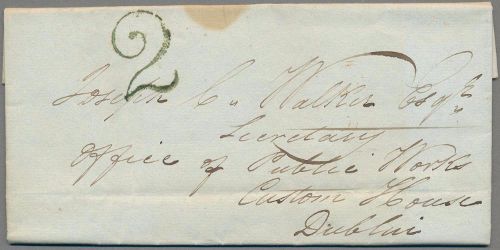 2
Joseph C. Walker Esqr.
Secretary
Office of Public Works
Custom House
Dublin